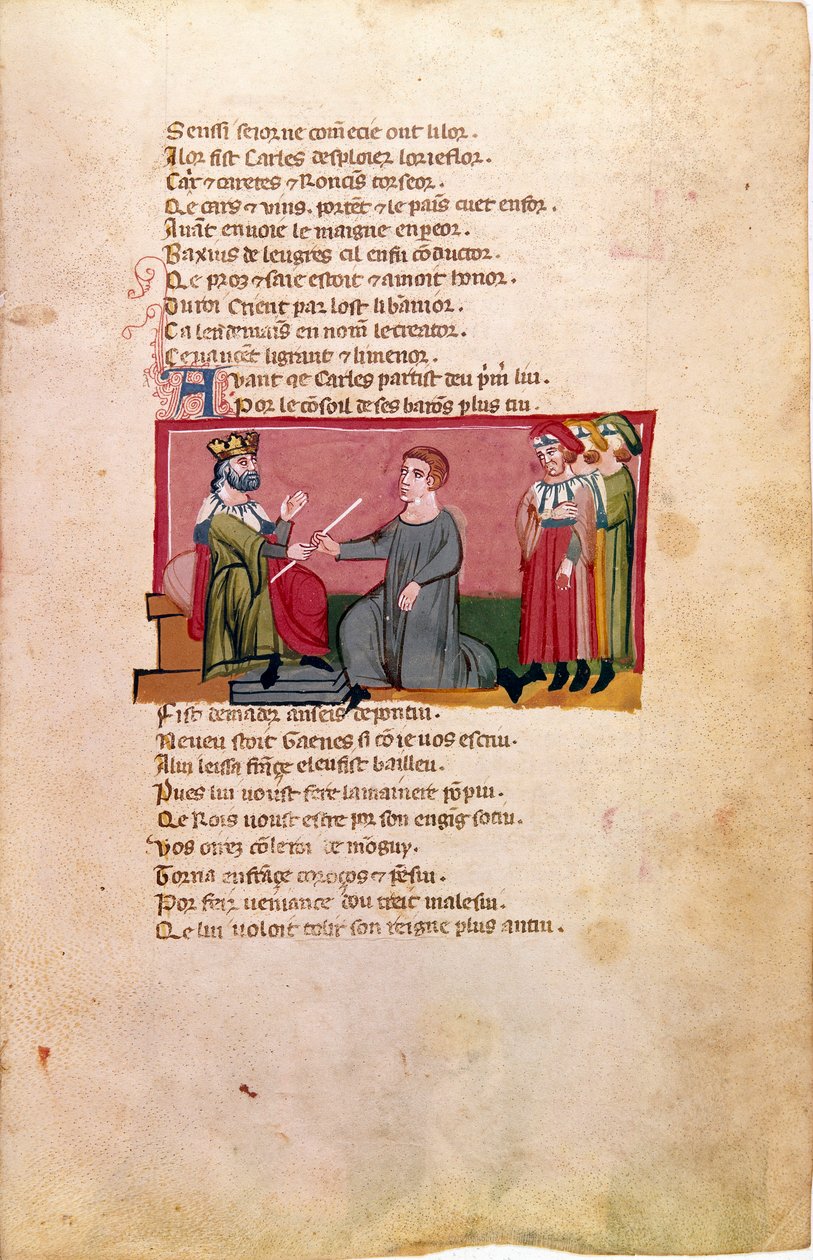 Senssi seiorne com̄ecie ont li lor.
Alor fist Carles desploier lorieflor.
Car ⁊ caretes ⁊ Roncin̄s torseor.
Qe cars ⁊ vins. portēt ⁊ le païs cuet enfor.
Auāt enuoie le maigne enpeor.
Baxins de lengres cil enfu cōductor.
Qe proz ⁊ saie estoit ⁊ amoit honor.
Du roi Crient par lost li banior.
Ca lendemain̄s en nom̄ le creator.
Ce riaucēt li grant ⁊ li menor.
Avant qe Carles partist deu pͥm̄ liu.
Por le cōsoil de ses barōs plus tiu.
Fist demāder anseis depontiu.
Neueu stoit Gaenes si cō ie uos escriu.
A lui leissa frāçe e leu fist bailleu.
Pues lui uoust fere la mainere rōpiu.
Qe Rois uoust estre por son engīg sotiu.
Vos orrez cō le roi de mōguy.
Torna en frāçe coroços ⁊ pēsiu.
Por feir ueniance dou treit malesiu.
Qe lui uoloit tolir son reigne plus antiu.